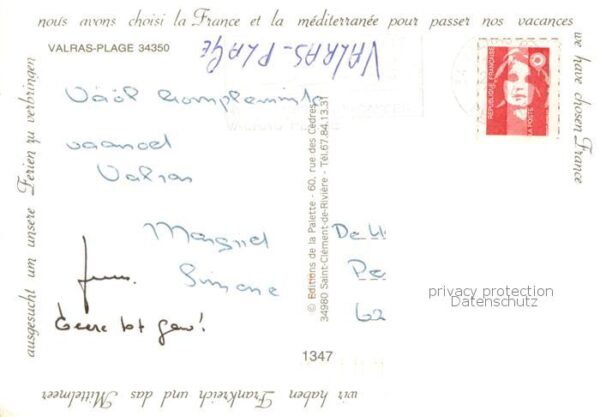 nous avons choisi la France et la méditerranée pour passer nos vacances
we have chosen France
VALRAS-PLAGE 34350
VALRAS-PLAGE
Veel komplementen
vanuit
Valras
Margriet
Simone
© Editions de la Palette - 60, rue des Cèdres
34980 Saint-Clément-de-Rivière - Tél.67.84.13.31
REPUBLIQUE FRANÇAISE
LA POSTE
De
Pe
62
privacy protection
Datenschutz
1347
wir haben Frankreich und das Mittelmeer
ausgesucht um unsere Ferien zu verbringen